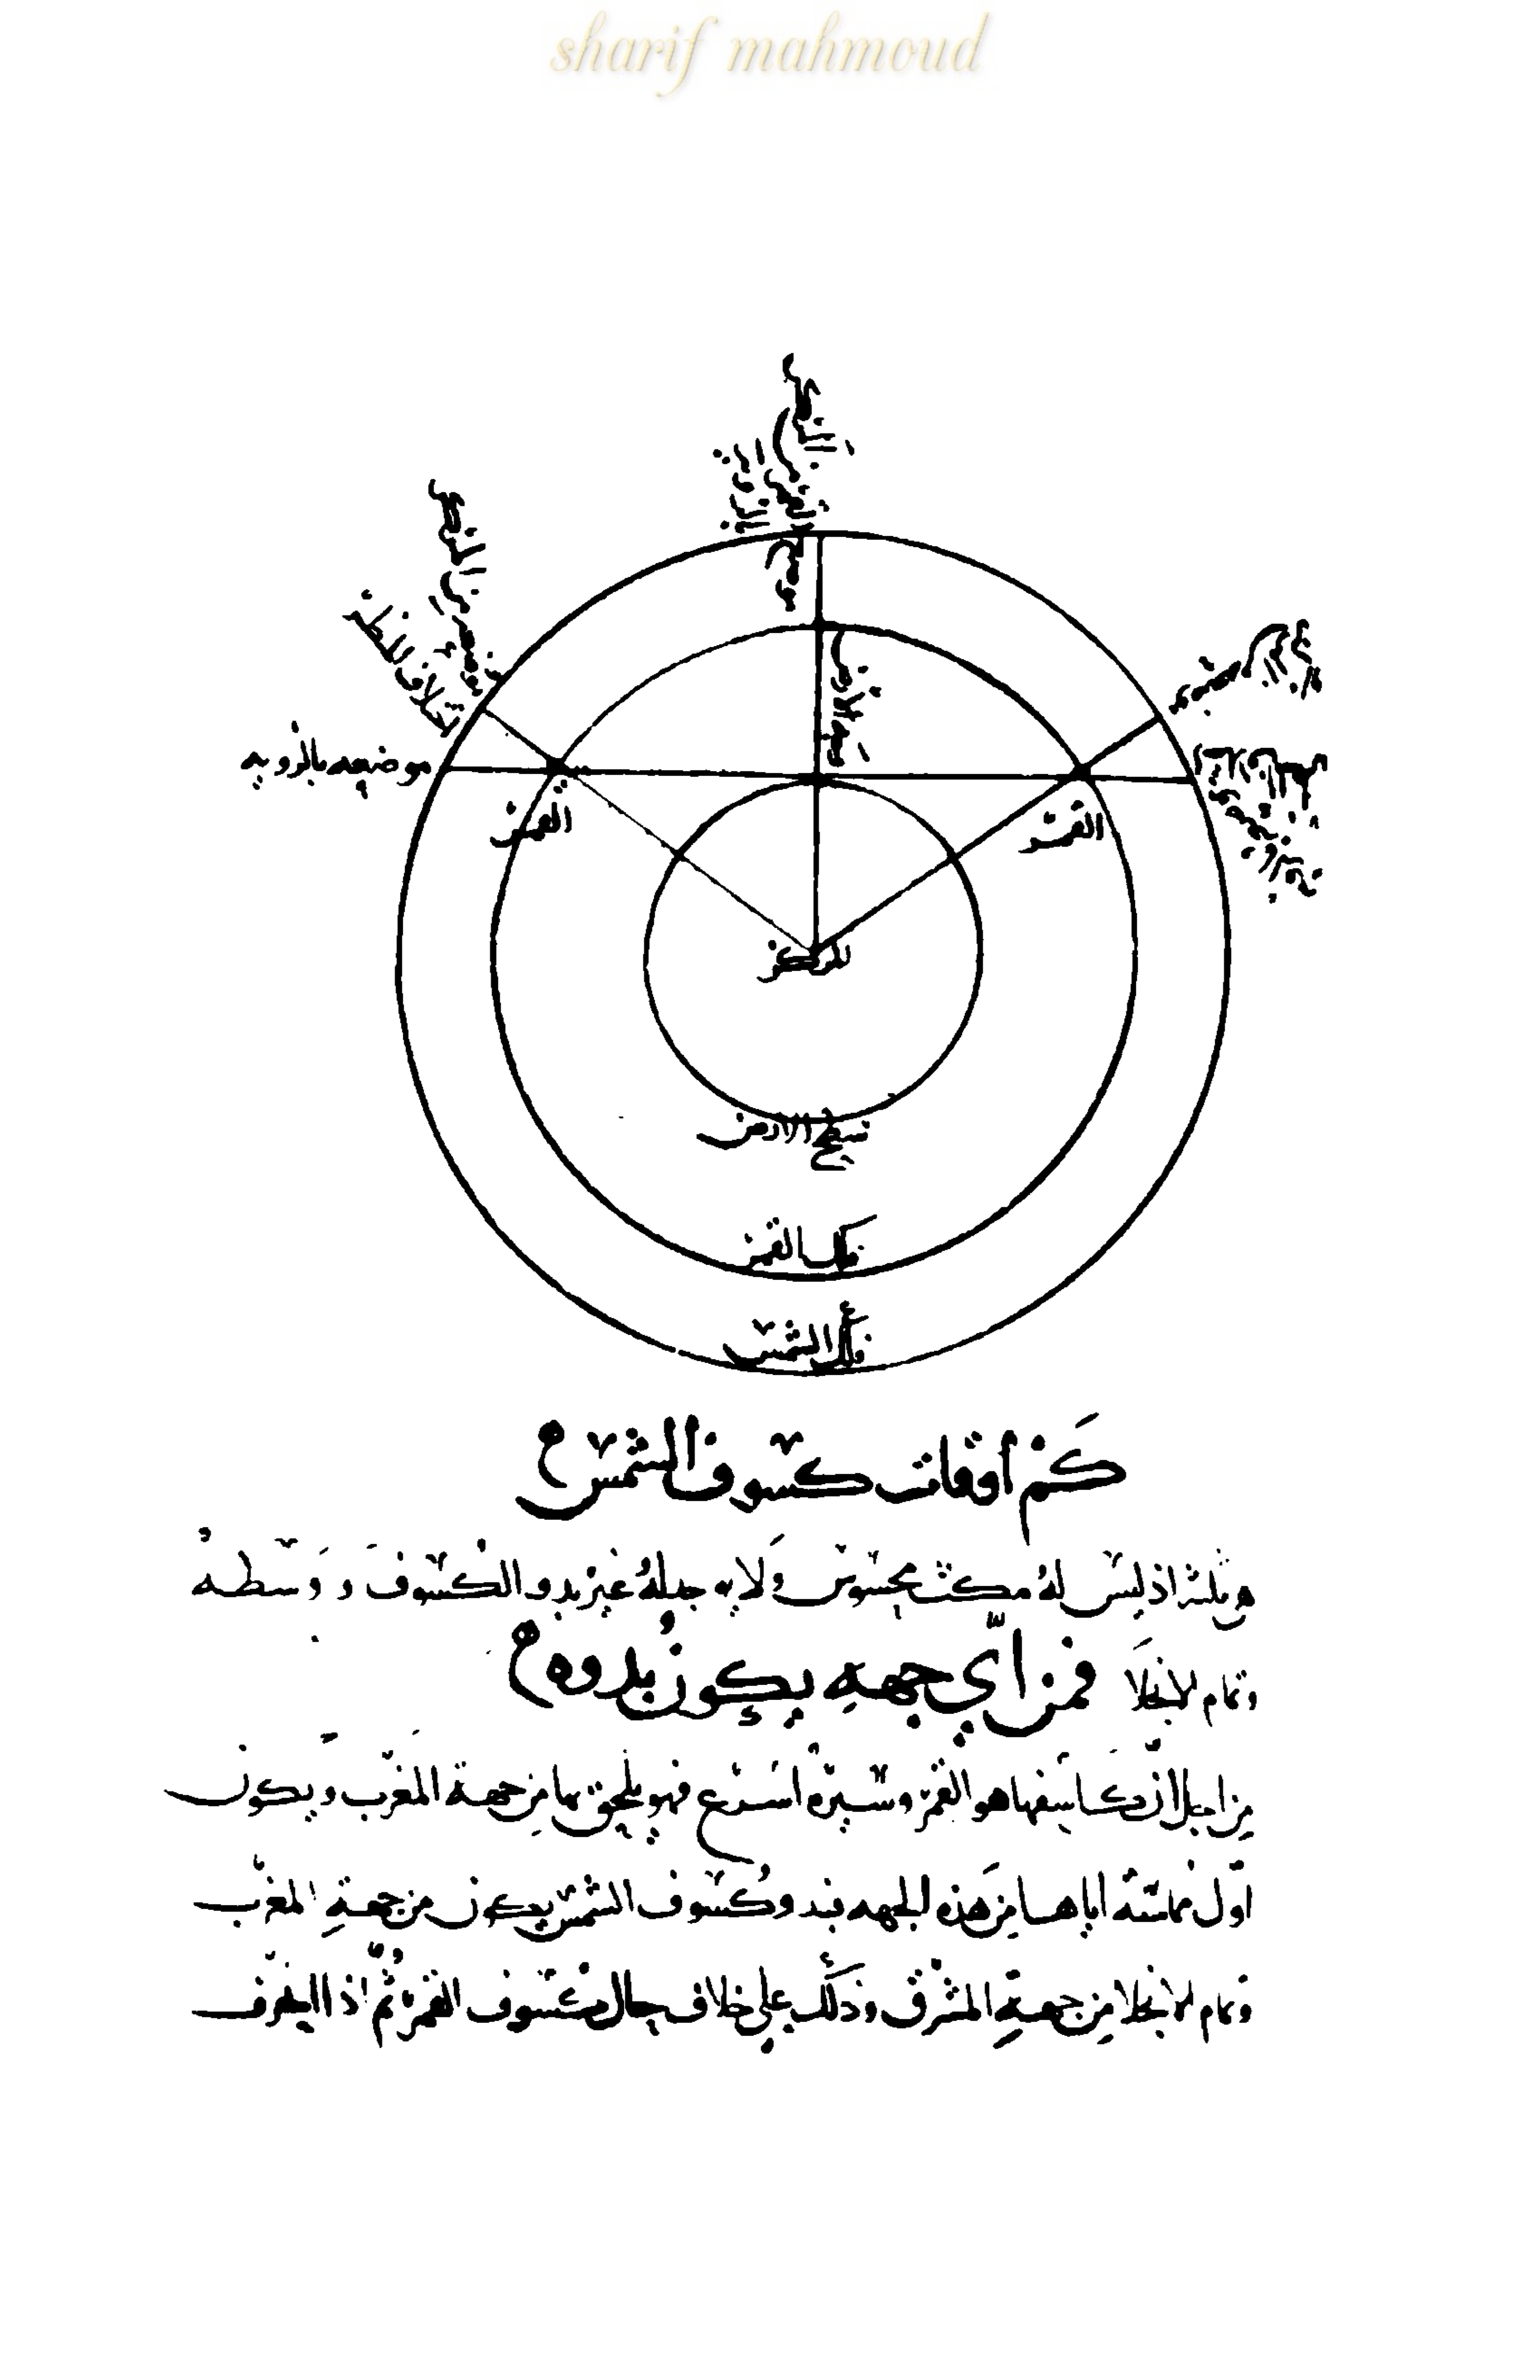 sharif mahmoud
موضعه بالرويه
القمر
القمر
المركز
سطح الارض
فلك القمر
فلك الشمس
كم أوقات كسوف الشمس
هي ثلثة اذ ليس له مكث محسوس ولا يوجد له غير بدو الكسوف و وسطه
وتمام الانجلا فمن أي جهه يكون بدوه
من اجل ان كاسفها هو القمر وسيره أسرع فهو يلحق بها من جهة المغرب ويكون
اول مماسته اياها من هذه الجهه فبدو كسوف الشمس يكون من جهة المغرب
وتمام الانجلا من جهة المشرق وذلك على خلاف حال كسوف القمر ثم اذا انحرف